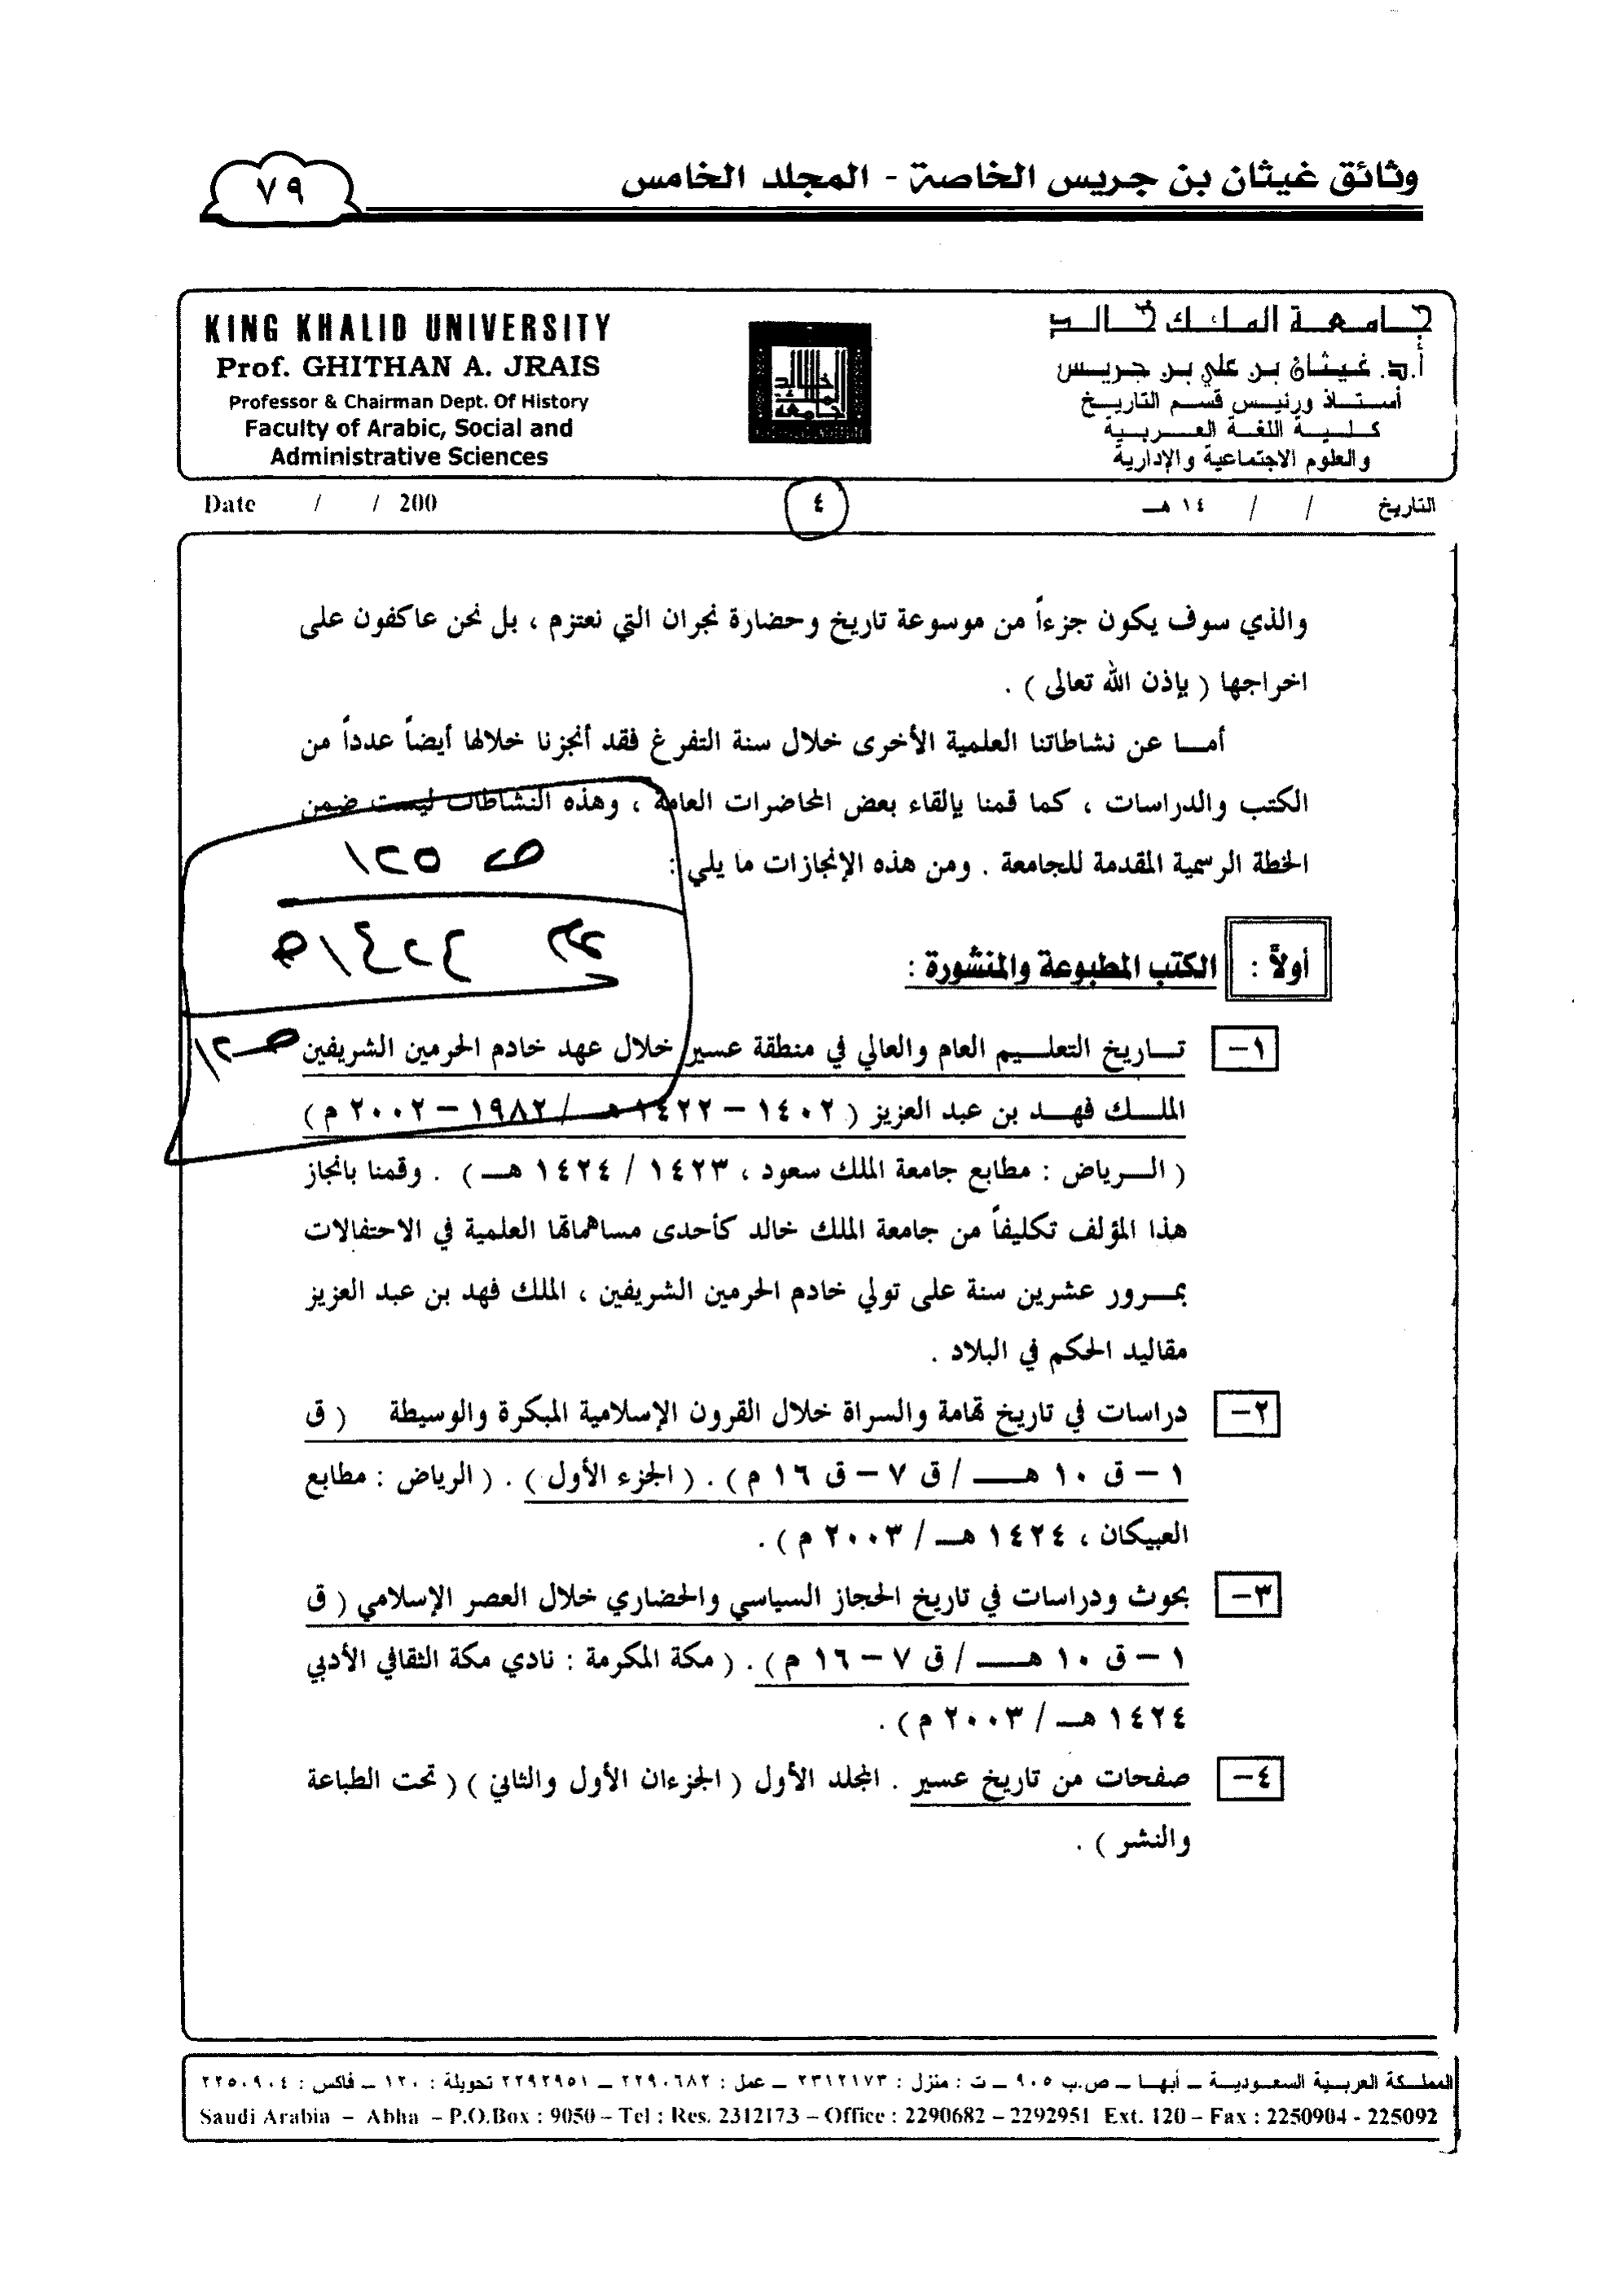 وثائق غيثان بن جريس الخاصة - المجلد الخامس
٧٩
جامعة الملك خالد
أ.د. غيثان بن علي بن جريس
أستاذ ورئيس قسم التاريخ
كلية اللغة العربية
والعلوم الاجتماعية والإدارية
KING KHALID UNIVERSITY
Prof. GHITHAN A. JRAIS
Professor & Chairman Dept. Of History
Faculty of Arabic, Social and
Administrative Sciences
التاريخ / / ١٤ هـ
٤
Date / / 200
والذي سوف يكون جزءاً من موسوعة تاريخ وحضارة نجران التي نعتزم ، بل نحن عاكفون على
اخراجها ( بإذن الله تعالى ) .
أما عن نشاطاتنا العلمية الأخرى خلال سنة التفرغ فقد أنجزنا خلالها أيضاً عدداً من
الكتب والدراسات ، كما قمنا بإلقاء بعض المحاضرات العامة ، وهذه النشاطات ليست ضمن
الخطة الرسمية المقدمة للجامعة . ومن هذه الإنجازات ما يلي :
أولاً : الكتب المطبوعة والمنشورة :
١- تاريخ التعليم العام والعالي في منطقة عسير خلال عهد خادم الحرمين الشريفين
الملك فهد بن عبد العزيز ( ١٤٠٢ – ١٤٢٢ هـ / ١٩٨٢ – ٢٠٠٢ م )
( الرياض : مطابع جامعة الملك سعود ، ١٤٢٣ / ١٤٢٤ هـ ) . وقمنا بانجاز
هذا المؤلف تكليفاً من جامعة الملك خالد كأحدى مساهماتها العلمية في الاحتفالات
بمرور عشرين سنة على تولي خادم الحرمين الشريفين ، الملك فهد بن عبد العزيز
مقاليد الحكم في البلاد .
٢- دراسات في تاريخ تهامة والسراة خلال القرون الإسلامية المبكرة والوسيطة ( ق
١ – ق ١٠ هـ / ق ٧ – ق ١٦ م ) . ( الجزء الأول ) . ( الرياض : مطابع
العبيكان ، ١٤٢٤ هـ / ٢٠٠٣ م ) .
٣- بحوث ودراسات في تاريخ الحجاز السياسي والحضاري خلال العصر الإسلامي ( ق
١ – ق ١٠ هـ / ق ٧ – ١٦ م ) . ( مكة المكرمة : نادي مكة الثقافي الأدبي
١٤٢٤ هـ / ٢٠٠٣ م ) .
٤- صفحات من تاريخ عسير . المجلد الأول ( الجزءان الأول والثاني ) ( تحت الطباعة
والنشر ) .
المملكة العربية السعودية – أبها – ص.ب ٩٠٥ – ت : منزل : ٢٣١٢١٧٣ – عمل : ٢٢٩٠٦٨٢ – ٢٢٩٢٩٥١ تحويلة : ١٢٠ – فاكس : ٢٢٥٠٩٠٤
Saudi Arabia – Abha – P.O.Box : 9050 – Tel : Res. 2312173 – Office : 2290682 – 2292951 Ext. 120 – Fax : 2250904 - 225092